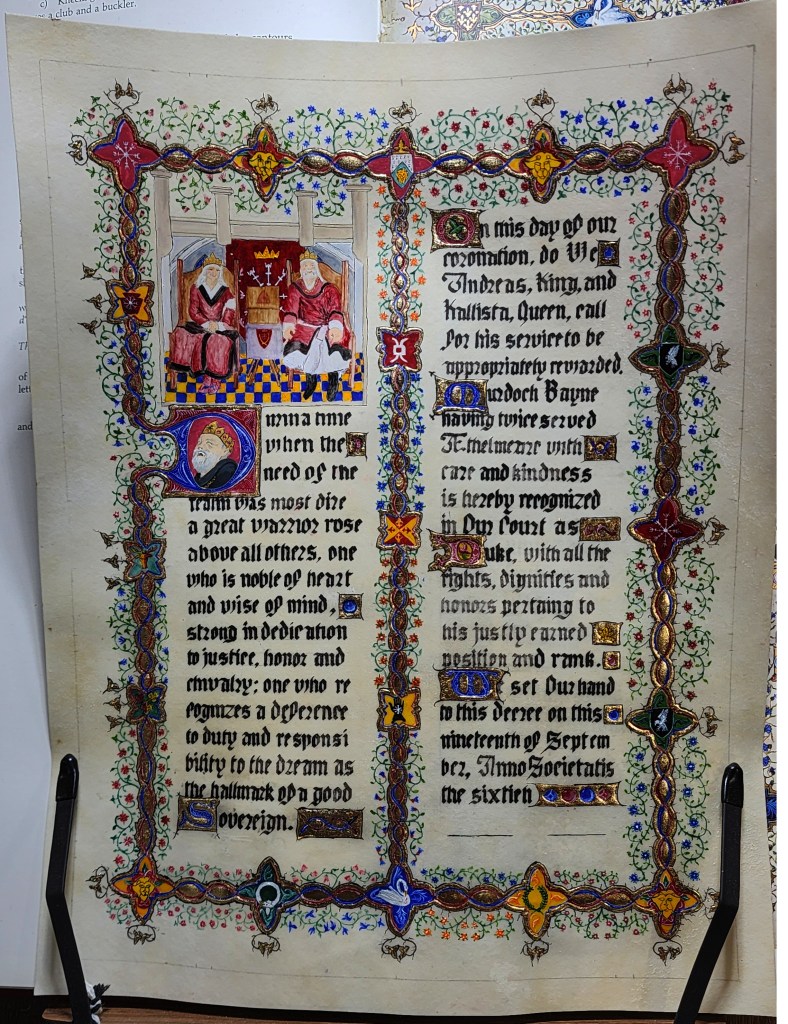 c)
a club and a buckler.
contours
Durin a time
when the
need of the
realm was most dire
a great warrior rose
above all others, one
who is noble of heart
and wise of mind,
strong in dedication
to justice, honor and
chivalry: one who re
cognizes a deference
to duty and responsi
bility to the dream as
the hallmark of a good
Sovereign.
On this day of our
coronation, do We
Andreas, King, and
Kallista, Queen, call
for his service to be
appropriately rewarded.
Murdoch Bayne
having twice served
Æthelmearc with
care and kindness
is hereby recognized
in Our Court as
Duke, with all the
rights, dignities and
honors pertaining to
his justly earned
position and rank.
We set Our hand
to this decree on this
nineteenth of Septem
ber, Anno Societatis
the